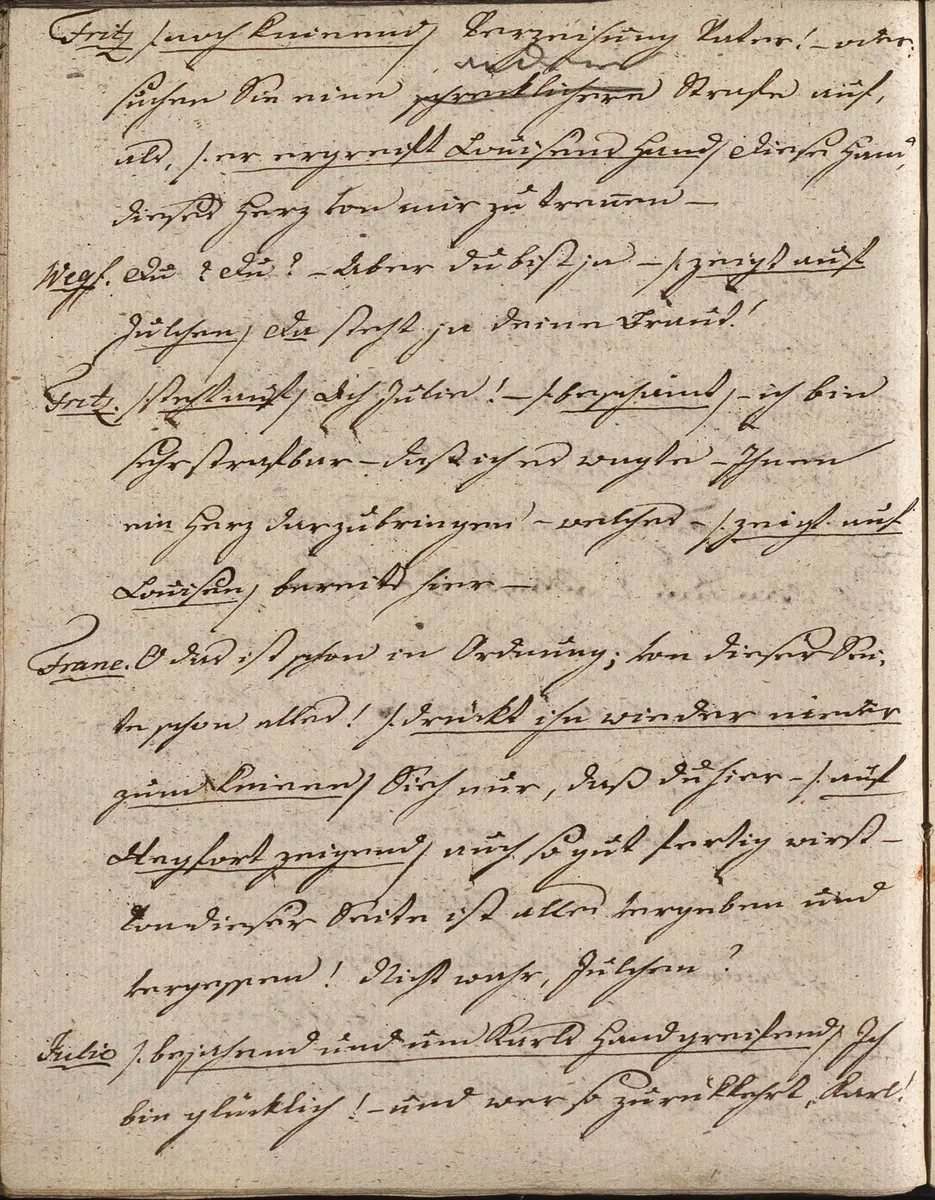 Fritz /: noch knieend :/ Verzeihung Vater! – oder
andere
suchen Sie eine schrecklichere Strafe auf,
als, /: er ergreift Louisens Hand :/ diese Hand,
dieses Herz von mir zu trennen –
Wegf. Du? Du? – Aber du bist ja – /: zeigt auf
Julchen :/ Da steht ja deine Braut!
Fritz. /: steht auf :/ Ach Julie! – /: beschämt :/ – ich bin
sehr strafbar – daß ich es wagte – Ihnen
ein Herz darzubringen – welches – /: zeigt auf
Louisen :/ bereits hier –
Franc. O das ist schon in Ordnung; von dieser Sei-
te schon alles! /: drückt ihn wieder nieder
zum knieen :/ Sieh nur, daß du hier – /: auf
Wegfort zeigend :/ auch so gut fertig wirst –
Von dieser Seite ist alles vergeben und
vergessen! Nicht wahr, Julchen?
Julie /: bejahend und um Karls Hand greifend :/ Ich
bin glücklich! – und wer so zurükkehrt, Karl!